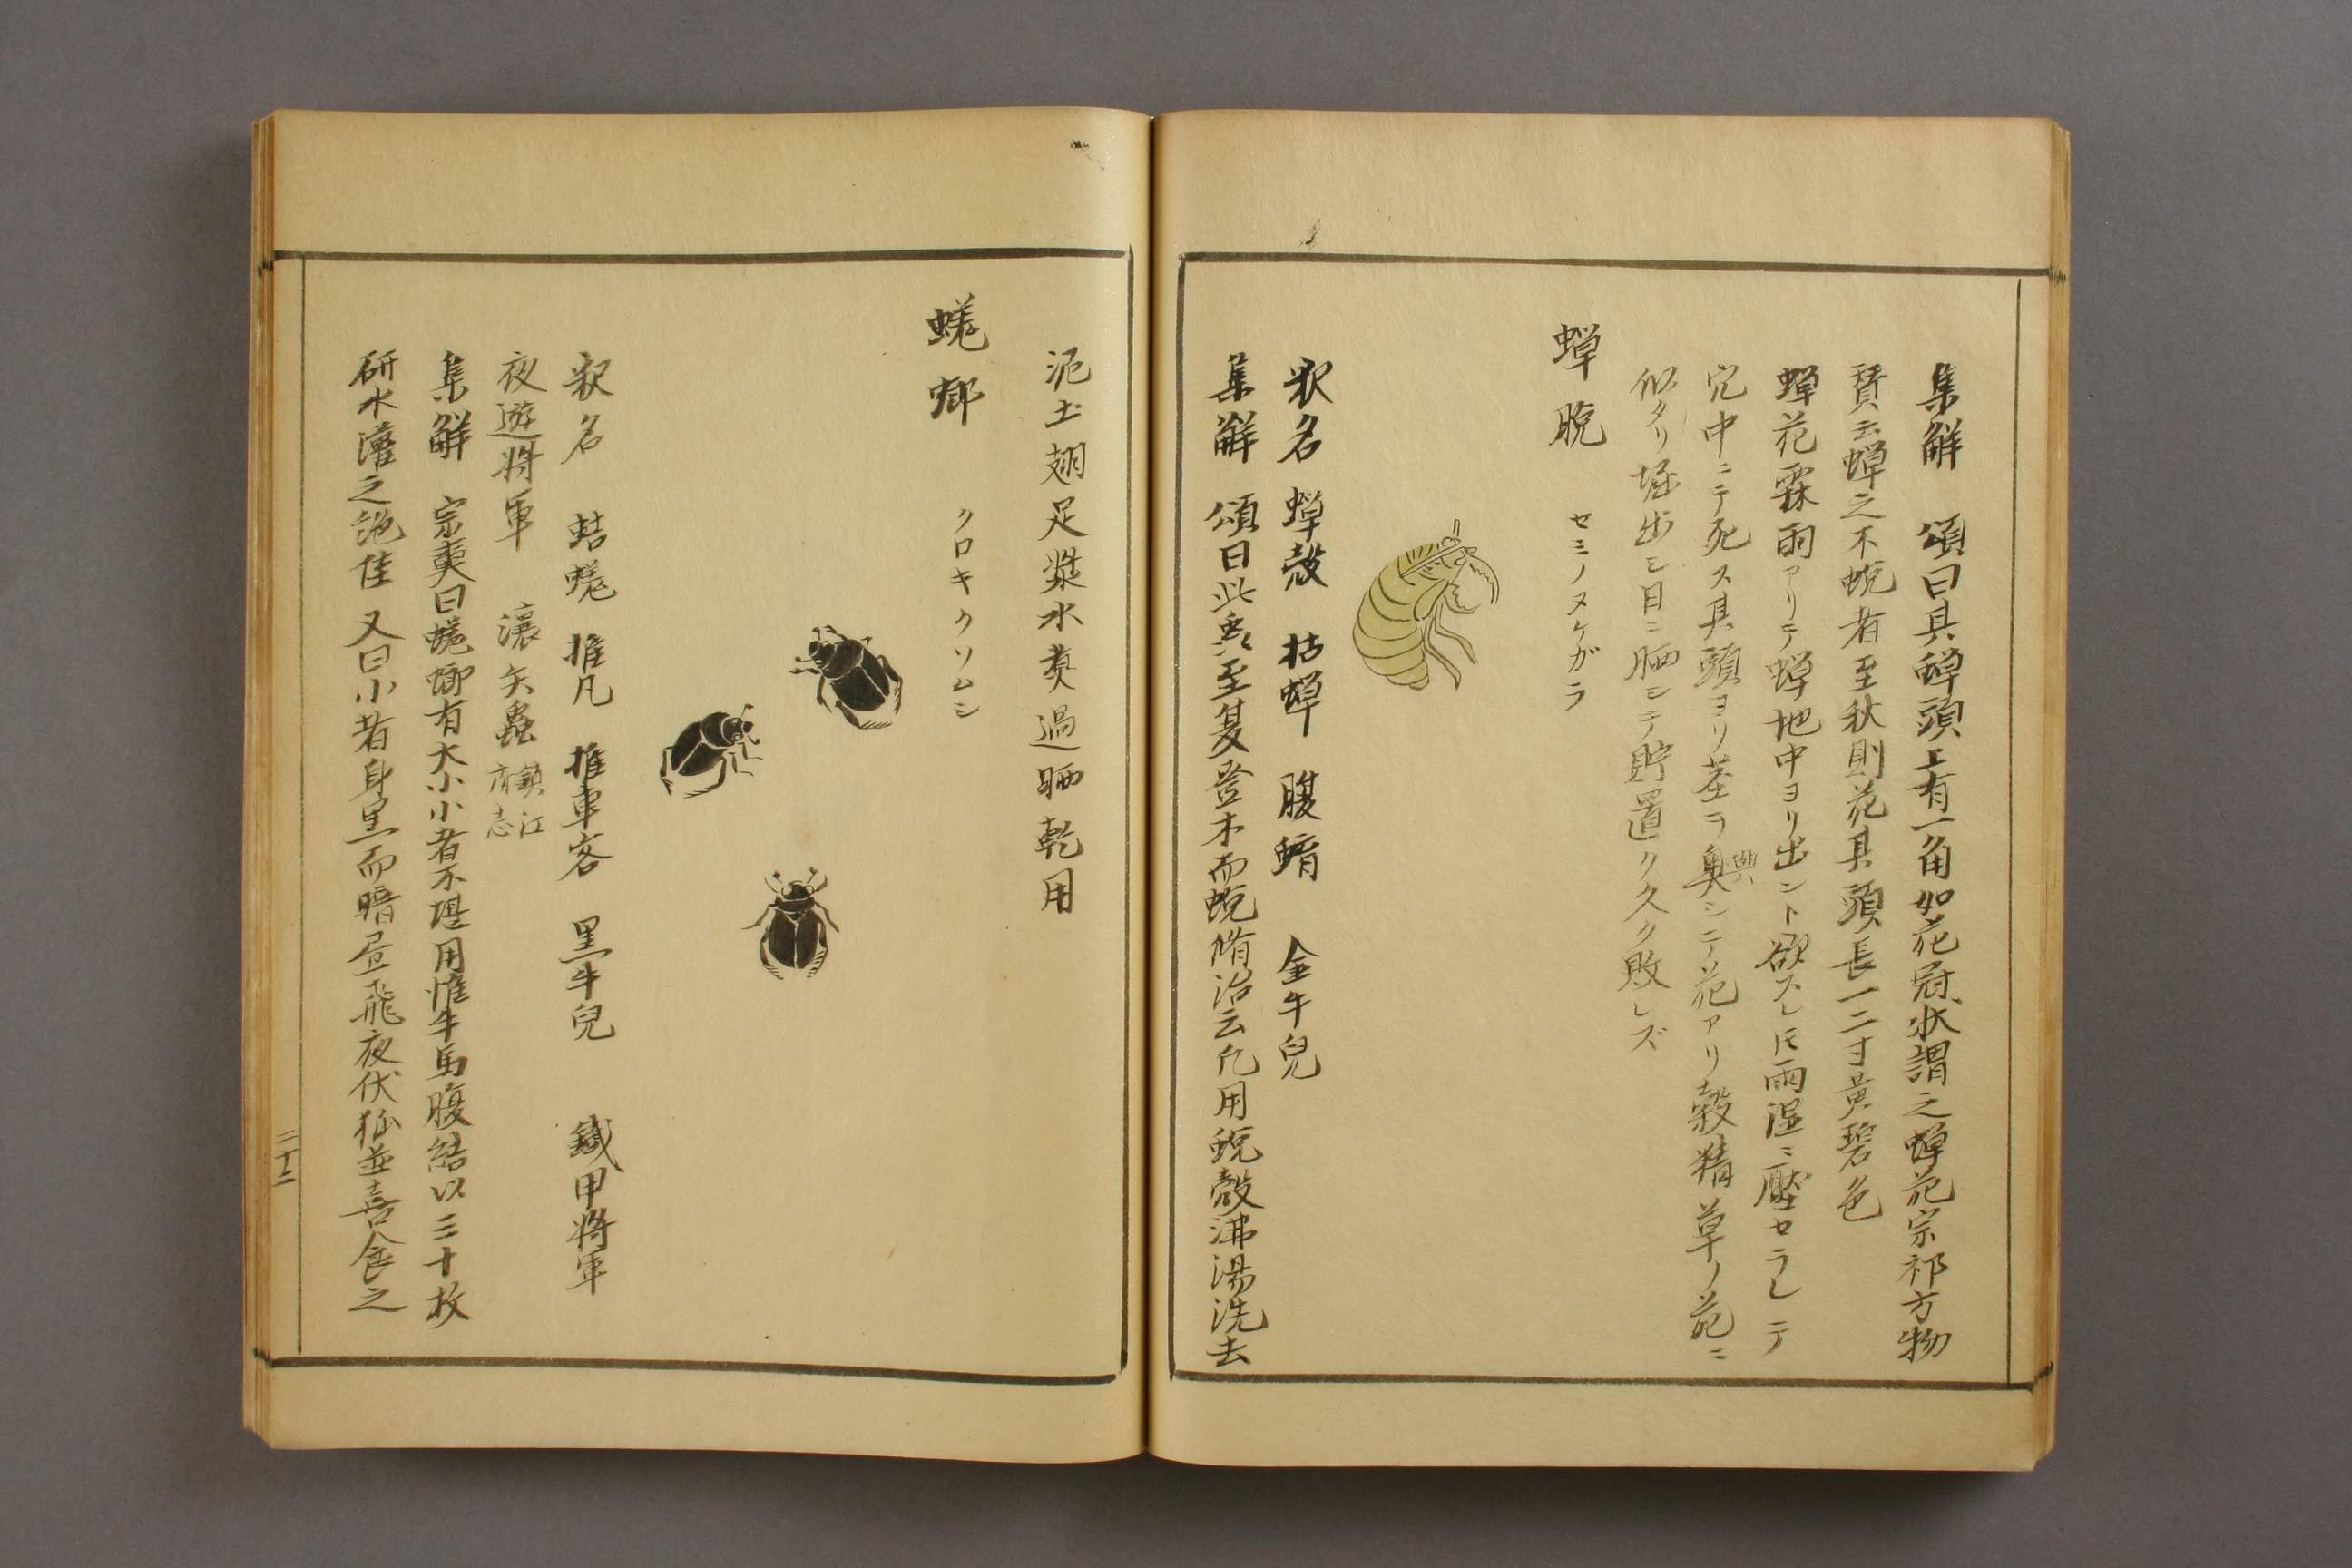 集解 頌曰其蟬頭上有一角如花冠狀謂之蟬花宗祁方物
賛云蟬之不蛻者至秋則花其頭長一二寸黄碧色
蟬花霖雨アリテ蟬地中ヨリ出ント欲スレ𪜈雨湿ニ壓セラレテ
穴中ニテ死ス其頭ヨリ茎ヲ奥シテ花アリ穀精草ノ花ニ
興
似タリ堀出シ日ニ晒シテ貯置ク久ク敗レズ
蟬脱 セミノヌケガラ
釈名 蟬殻 枯蟬 腹蜟 金牛兒
集解 頌曰此虫至夏登木而蛻脩治云凡用蛻殻沸湯洗去
泥土翅足漿水煑過晒乾用
蜣螂 クロキクソムシ
釈名 蛣蜣 推丸 推車客 黒牛兒 鐵甲将軍
夜遊将軍 滾矢蟲 鎮江府志
集解 宗奭曰蜣螂有大小小者不堪用惟牛馬腹結以三十枚
研水灌之絶佳 又曰小者身黒而暗昼飛夜伏狐並喜食之
二十二